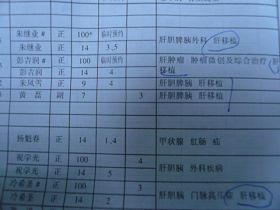 朱继业# 正 100* 临时预约
朱继业 正 14 3,5 肝胆脾胰外科 肝移植
彭吉润# 正 100 临时预约 肝肿瘤 肿瘤微创及综合治疗 肝
彭吉润 正 14 4 移植
朱凤雪 正 9 4 肝胆脾胰 肝移植
黄磊 副 7 3 肝胆脾胰 肝移植
杨魁春 正 14 1,4 甲状腺 肛肠 疝
祝学光 正 100 4
祝学光 正 14 3 肝胆胰 外科疾病
冷希圣# 正 100 3
冷希圣# 正 14 2 肝胆胰 门脉高压症 肝移植